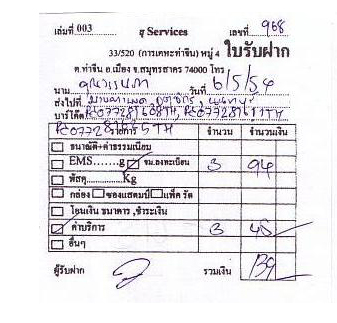 เล่มที่ 003 ๆ Services เลขที่ 968
33/520 (การเคหะท่าจีน) หมู่ 4 ใบรับฝาก
ต.ท่าจีน อ.เมือง จ.สมุทรสาคร 74000 โทร
นาม วันที่ 6/5/54
ส่งไปที่
บาร์โค้ด
รายการ จำนวน จำนวนเงิน
ธนาณัติ+ค่าธรรมเนียม
EMS.......g จม.ลงทะเบียน 3 94
พัสดุ..............Kg
กล่อง ซองแสตมป์ แพ็ค รัด
โอนเงิน ธนาคาร ,ชำระเงิน
ค่าบริการ 3 45
อื่นๆ
ผู้รับฝาก รวมเงิน 139